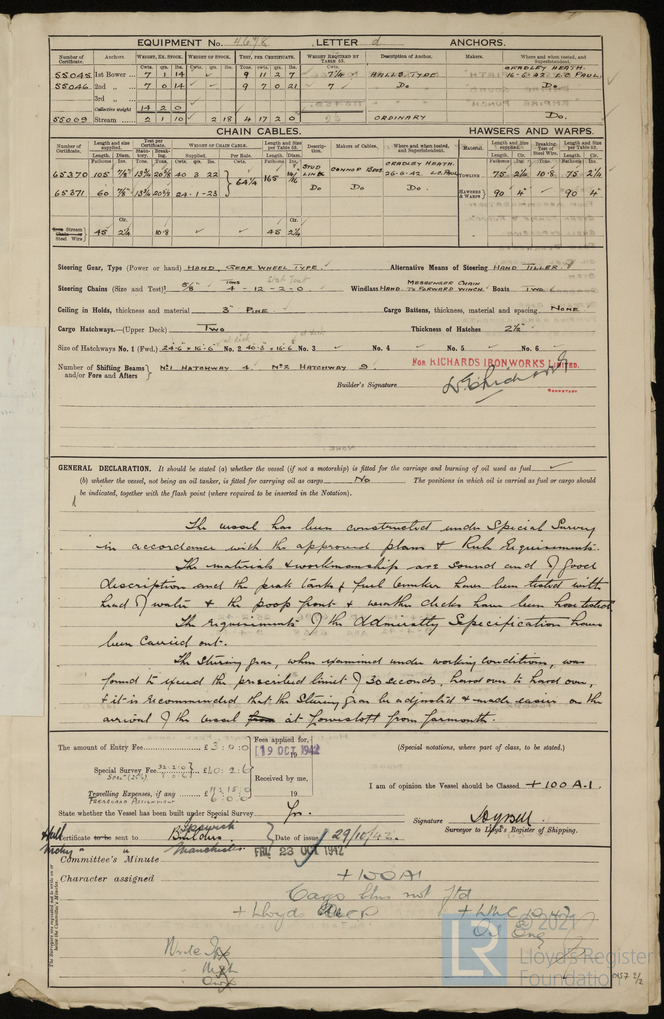 EQUIPMENT No. 4678 LETTER d ANCHORS.
Number of Certificate. Anchors. WEIGHT, EX. STOCK. WEIGHT OF STOCK. TEST, PER CERTIFICATE. WEIGHT REQUIRED BY TABLE 53. Description of Anchor. Makers. Where and when tested, and Superintendent.
Cwts. qrs. lbs. Cwts. qrs. lbs. Tons. cwts. qrs. lbs. Cwts.
55045 1st Bower 7 1 14 9 11 2 7 7¼ HALLS TYPE CRADLEY HEATH. 16.6.42 L.C. PAUL.
55046 2nd „ 7 0 14 9 7 0 21 7 Do Do.
3rd „
Collective weight 14 2 0
55009 Stream 2 1 10 2 18 4 17 2 0 ORDINARY Do.
CHAIN CABLES. HAWSERS AND WARPS.
Number of Certificate. Length and size supplied. Test per Certificate. WEIGHT OF CHAIN CABLE. Length and Size per Table 53. Description. Makers of Cables. Where and when tested, and Superintendent. Material. Length and size supplied. Breaking Test of Steel Wire. Length and size per Table 53.
65370 105 7/8" 40 3 22 64¼ 165 STUD LINK CRADLEY HEATH. 26.6.42 L.C. PAUL TOWLINE 75 2¼ 10·8 75 2¼
65371 60 7/8" 24-1-23 Do Do Do. HAWSERS & WARPS 90 4" 90 4"
Stream Chain or Steel Wire 45 2¼ 10·8 45 2¼
Steering Gear, Type (Power or hand) HAND, GEAR WHEEL TYPE. Alternative Means of Steering HAND TILLER
Steering Chains (Size and Test) 5/8" Tons 4 - 12 - 2 - 0 Windlass HAND. MESSENGER CHAIN TO FORWARD WINCH. Boats TWO
Ceiling in Holds, thickness and material 3" PINE Cargo Battens, thickness, material and spacing NONE
Cargo Hatchways.—(Upper Deck) TWO Thickness of Hatches 2½"
Size of Hatchways No. 1 (Fwd.) 24'-6" × 16'-6" No. 2 40'-3" × 16'-6" No. 3 No. 4 No. 5 No. 6
Number of Shifting Beams and/or Fores and Afters No1 HATCHWAY 4 No2 HATCHWAY 9. FOR RICHARDS IRONWORKS LIMITED.
Builder's Signature
SECRETARY
GENERAL DECLARATION. It should be stated (a) whether the vessel (if not a motorship) is fitted for the carriage and burning of oil used as fuel
(b) whether the vessel, not being an oil tanker, is fitted for carrying oil as cargo No The positions in which oil is carried as fuel or cargo should
be indicated, together with the flash point (where required to be inserted in the Notation).
The vessel has been constructed under Special Survey
in accordance with the approved plans & Rule Requirements.
The materials & workmanship are sound and of good
description and the peak tanks & fuel bunker have been tested with
head of water & the poop front & weather decks have been hose tested.
The requirements of the Admiralty Specification have
been carried out.
The steering gear, when examined under working conditions, was
found to exceed the prescribed limit of 30 seconds, hard over to hard over,
& it is recommended that the steering gear be adjusted & made easier on the
arrival of the vessel at Lowestoft from Yarmouth.
The amount of Entry Fee £ 3 : 0 : 0 Fees applied for, 19 OCT 1942 (Special notations, where part of class, to be stated.)
Special Survey Fee £40 : 2 : 6
Received by me,
Travelling Expenses, if any £11 : 15 : 0 19 I am of opinion the Vessel should be Classed +100 A.1.
FREEBOARD ASSIGNMENT 6 : 0 : 0
State whether the Vessel has been built under Special Survey Yes.
Signature
Surveyor to Lloyd's Register of Shipping.
Hull Certificate to be sent to Builders Ipswich Date of issue 29/10/42.
Mchy " " Manchester FRI. 23 OCT 1942
Committee's Minute
Character assigned +100A1
Cargo btns not ftd
+ Lloyds + LMC 10.42
Oil Eng
Write Ipx
The Surveyors are requested not to write on or below the Committee's Minute.
© 2021
LR Lloyd's Register Foundation